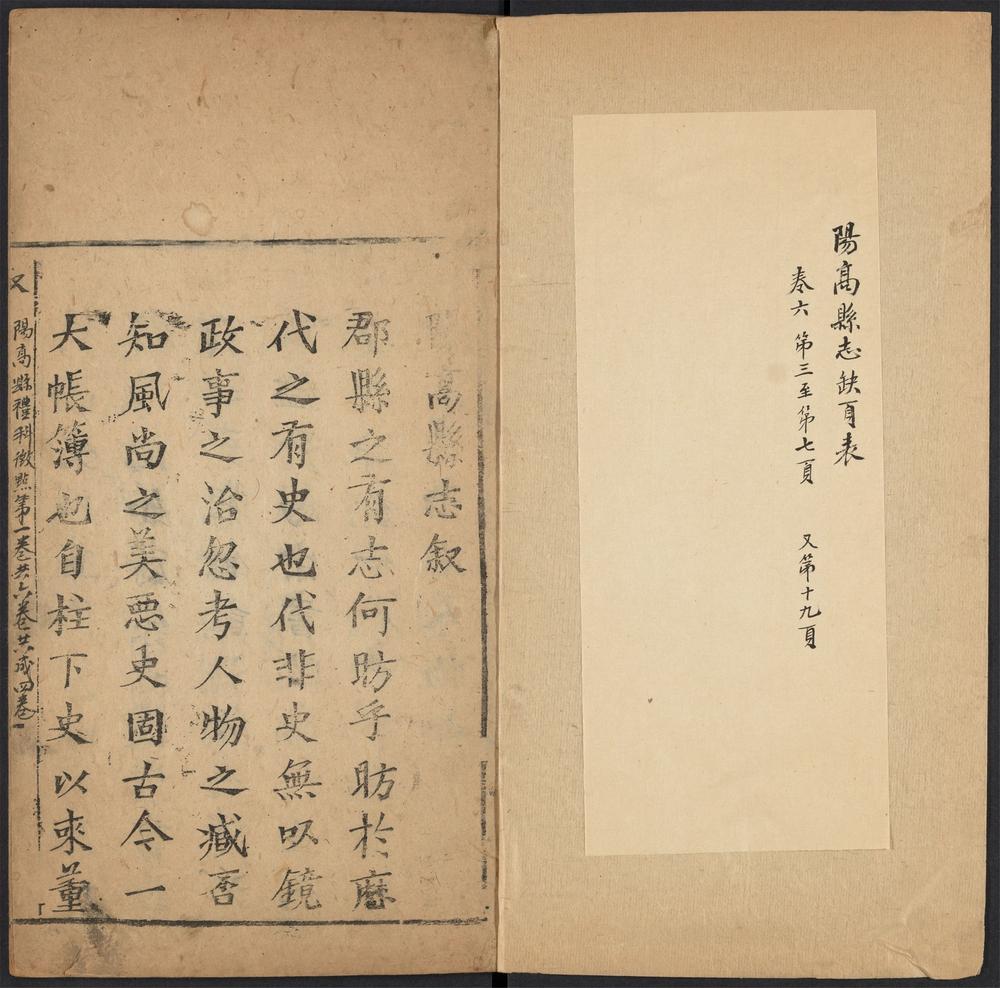 陽高縣志缺頁表
卷六 第三至第七頁 又第十九頁
陽高縣志叙
郡縣之有志何昉乎昉於歷
代之有史也代非史無以鏡
政事之治忽考人物之臧否
知風尚之美惡史固古今一
大帳簿也自柱下史以來董
又 陽高縣禮科徵點第一卷共六卷共成四卷